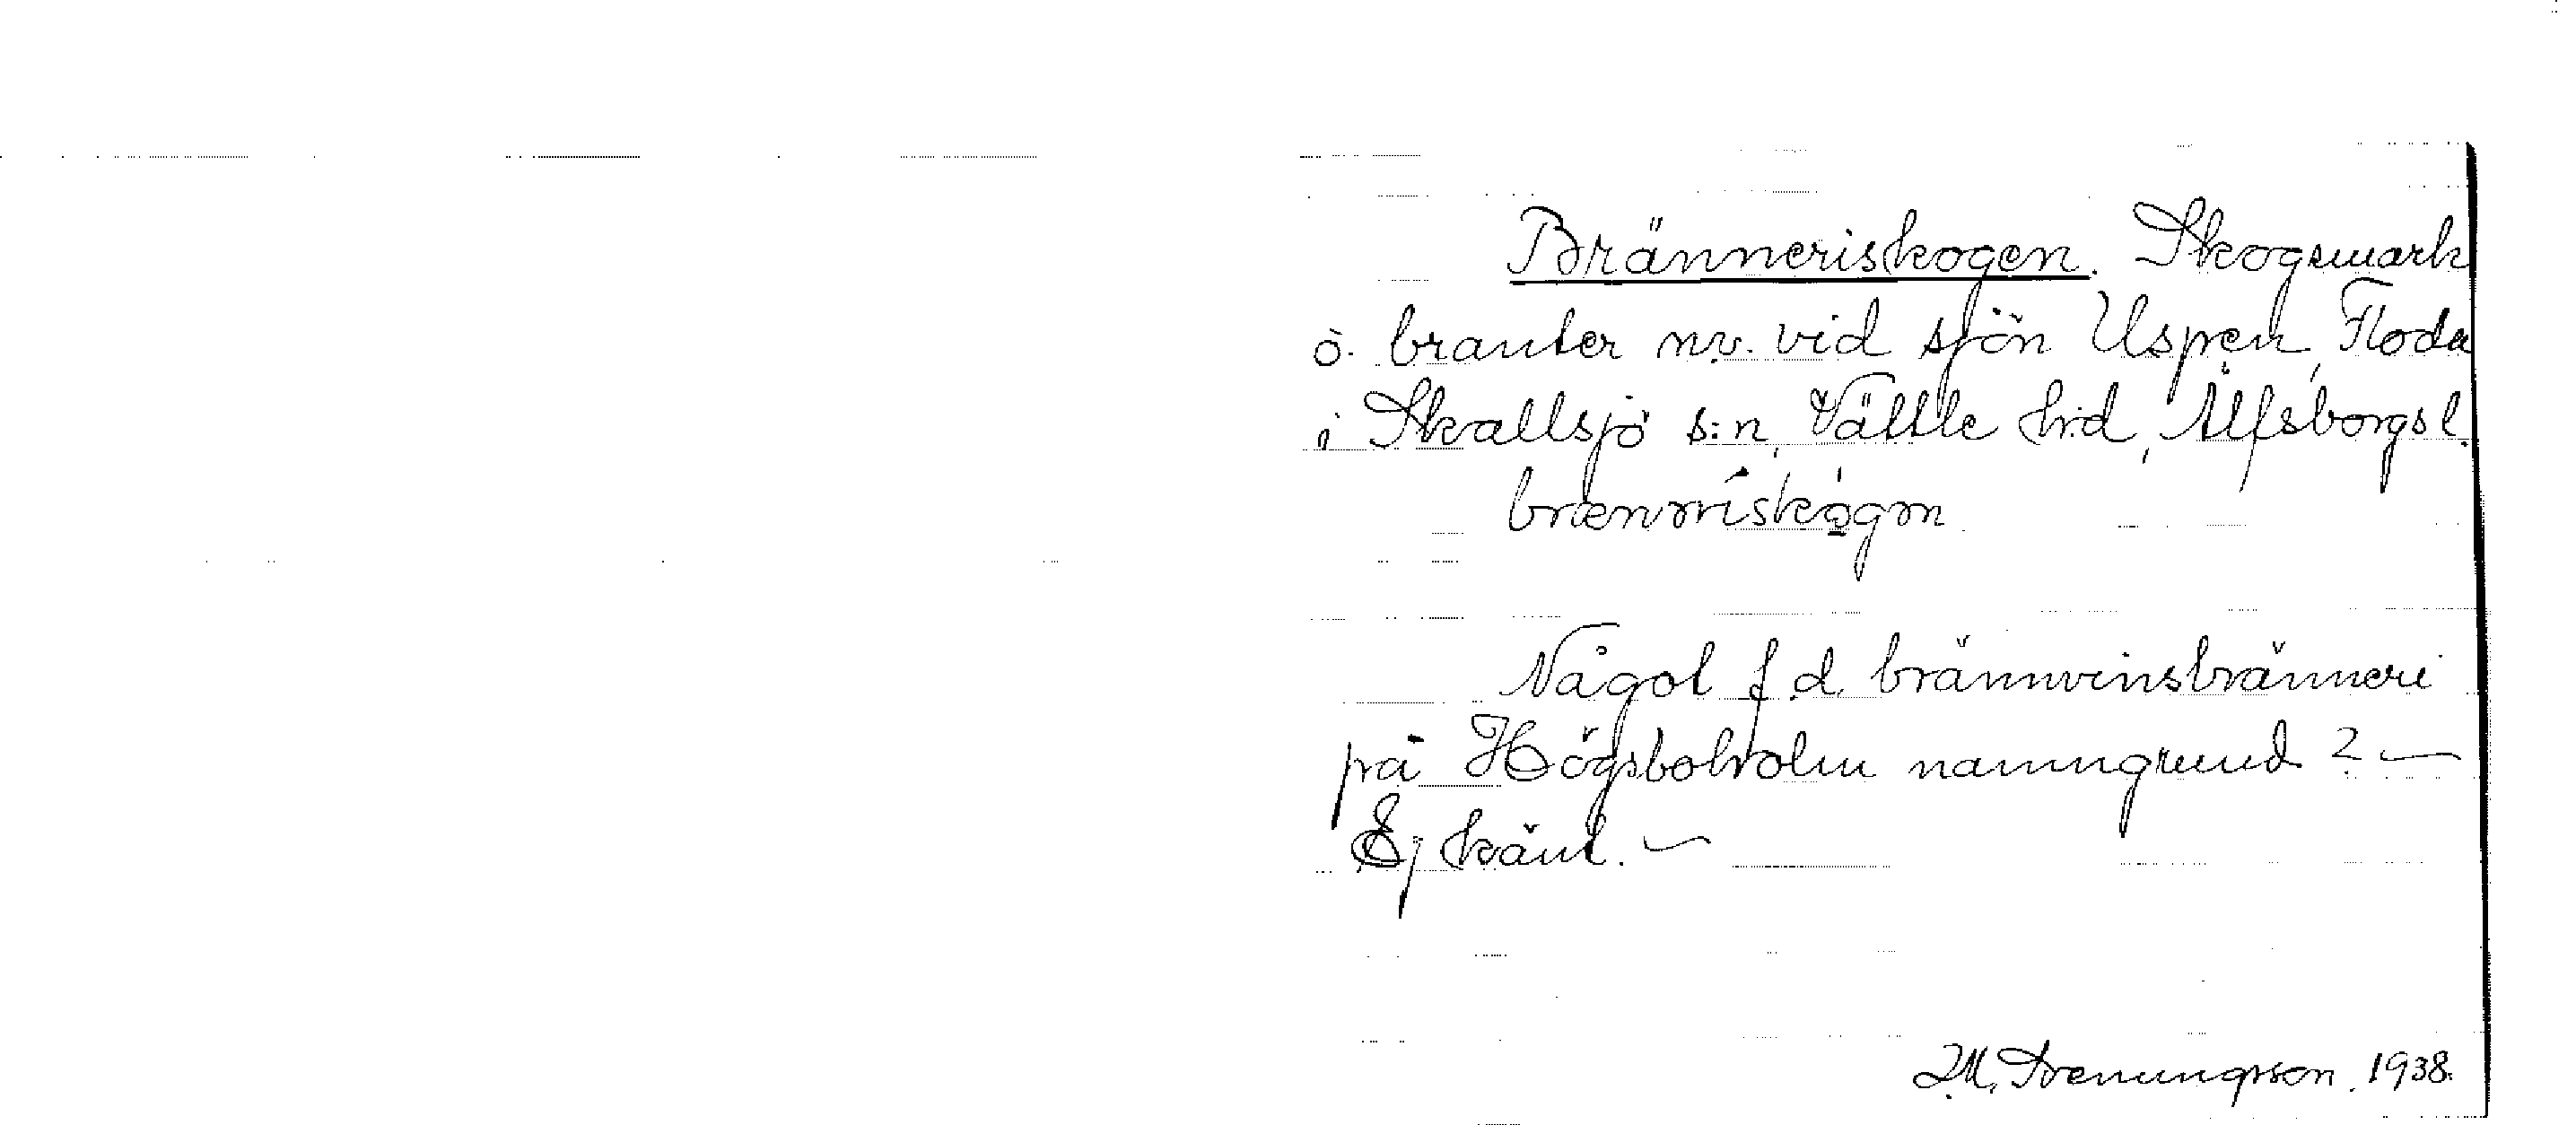 Bränneriskogen. Skogsmark
o. branter nv. vid sjön Uspen, Floda
i Skallsjö s:n, Vättle hrd, Älfsborgs l.
Något f.d. brännvinsbränneri
på Högsboholm namngrund? —
Ej känt. —
1938.